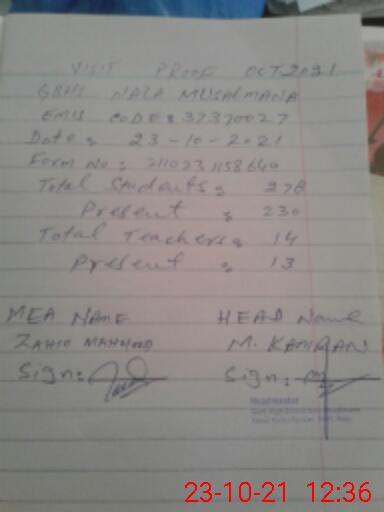 VISIT PROOF OCT 2021
GBHS NALA MUSALMANA
EMIS CODE: 37370027
Date: 23-10-2021
Form No: 2110231158640
Total Students: 278
Present : 230
Total Teachers: 14
Present : 13
MEA NAME HEAD Name
ZAHID MAHMOOD M. KAMRAN
Sign: Sign:
Headmaster
23-10-21 12:36